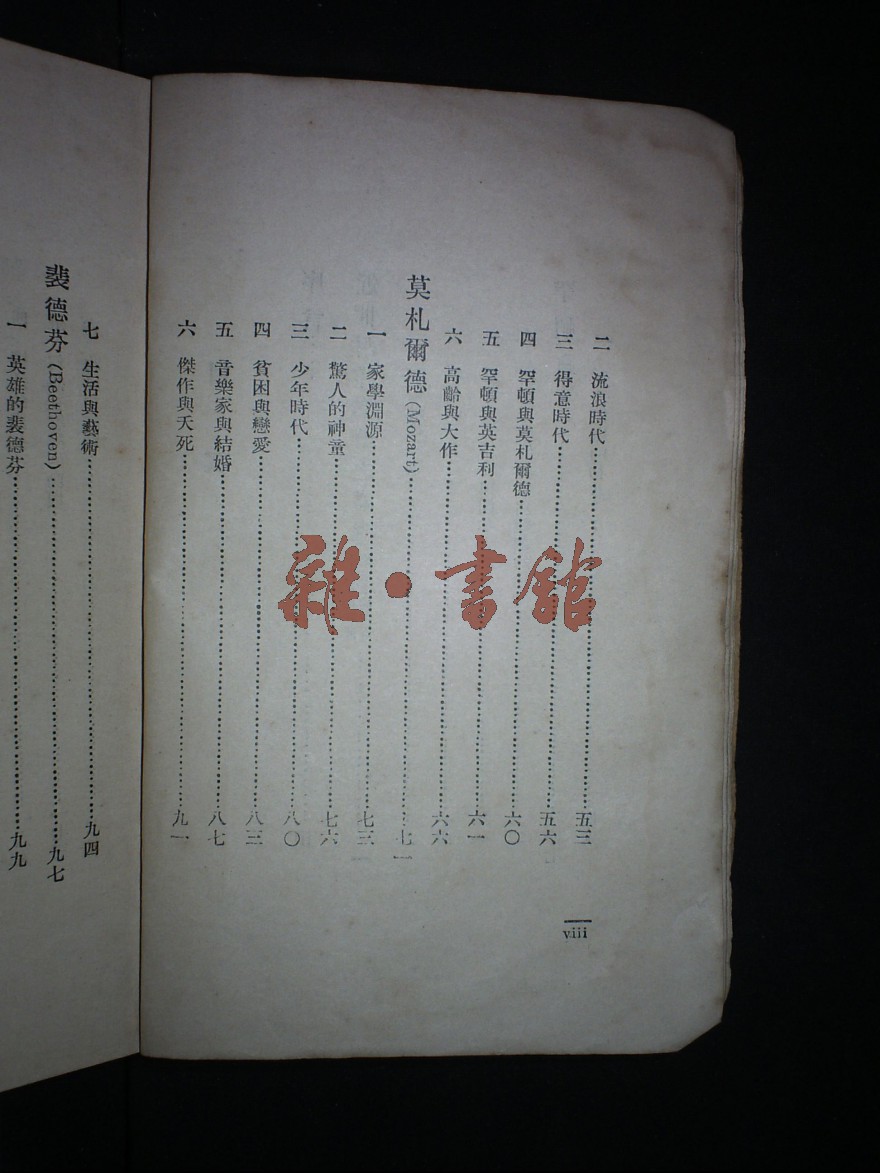 二　流浪時代……五三
三　得意時代……五六
四　罕頓與莫札爾德……六〇
五　罕頓與英吉利……六一
六　高齡與大作……六六
莫札爾德(Mozart)……七一
一　家學淵源……七三
二　驚人的神童……七六
三　少年時代……八〇
四　貧困與戀愛……八三
五　音樂家與結婚……八七
六　傑作與夭死……九一
viii
七　生活與藝術……九四
裴德芬(Beethoven)……九七
一　英雄的裴德芬……九九
雜·書館